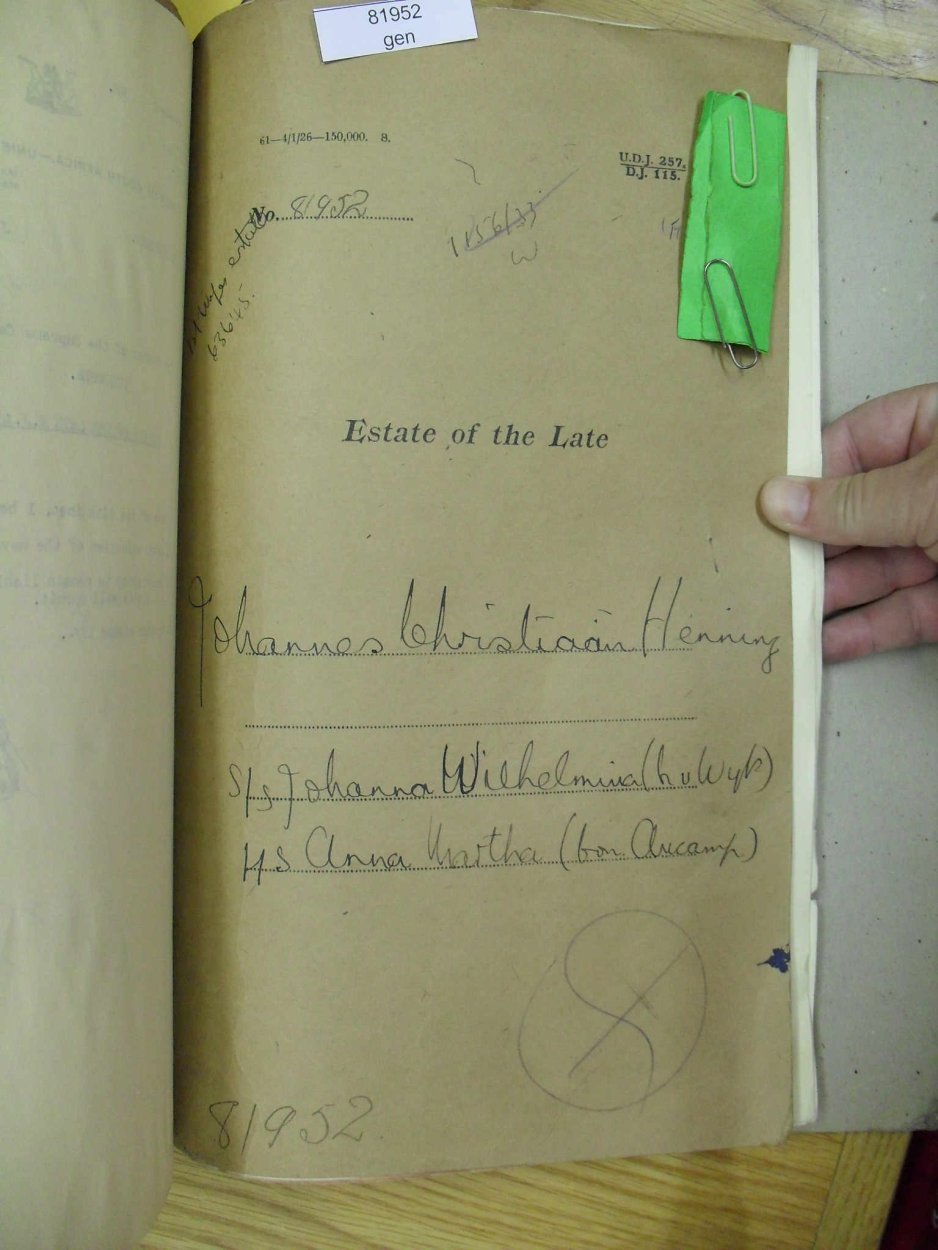 81952
gen
61—4/1/26—150,000. S.
U.D.J. 257.
D.J. 115.
No. 81952
1156/33
W
1st wifes estate
63645.
Estate of the Late
Johannes Christiaän Henning
S/s Johanna Wilhelmina (b v Wyk)
H/S Anna Martha (born Aucamp)
81952